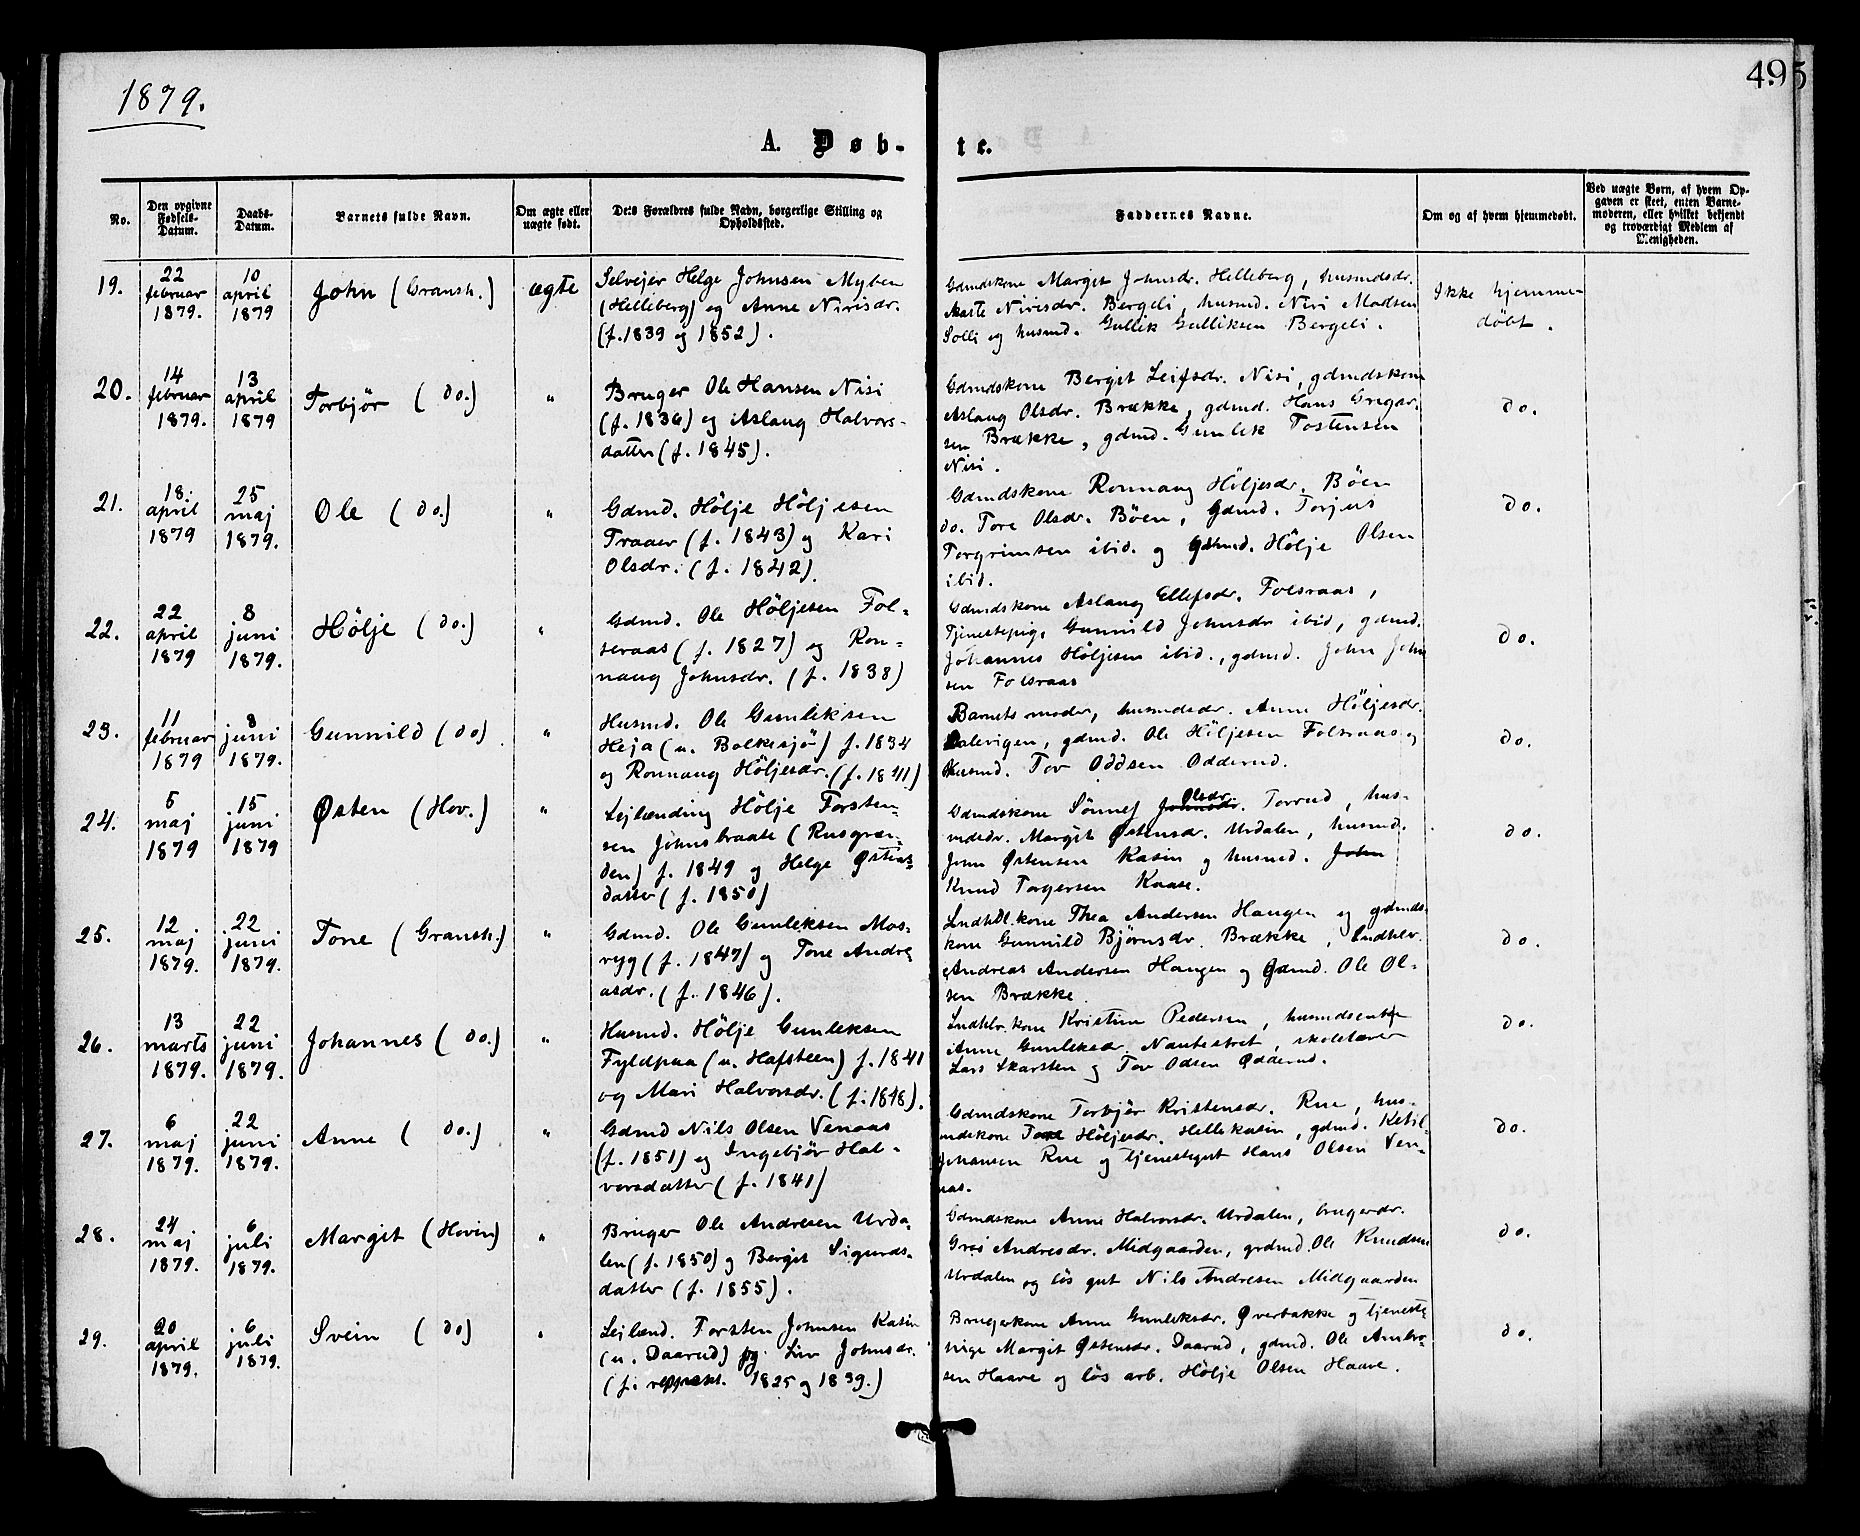 1879.
495
A. Døb-
te.
No.
Den opgivne Fødsels-Datum.
Daabs-Datum.
Barnets fulde Navn.
Om ægte eller uægte født.
Dets Forældres fulde Navn, borgerlige Stilling og Opholdssted.
Faddernes Navne.
Om og af hvem hjemmedøbt.
Ved uægte Børn, af hvem Opgaven er skeet, enten Barnemoderen, eller hvilket bekjendt og troværdigt Medlem af Menigheden.
19.
22 februar 1879.
10 april 1879
John (Gransh.)
ægte
Selvejer Helge Johnsen Myben
(Helleberg) og Anne Nirisdr.
(f. 1839 og 1852).
Gdmdskone Margit Johnsdr. Helleberg, husmdsdr.
Aaste Nirisdr. Bergeli, husmd. Niri Madsen
Solli og husmd. Gullik Gulliksen Bergeli.
Ikke hjemme-
døbt.
20.
14 februar 1879.
13 april 1879
Torbjør (do.)
"
Bruger Ole Hansen Nisi
(f. 1836) og Aslaug Halvors-
datter (f. 1845).
Gdmdskone Bergit Leifsdr. Nisi, gdmdskone
Aslaug Olsdr. Brække, gdmd. Hans Gregar-
sen Brække, gdmd. Gunlek Tostensen
Nisi.
do.
21.
18. april 1879
25 maj 1879.
Ole (do.)
"
Gdmd. Hølje Høljesen
Traaer (f. 1843) og Kari
Olsdr. (f. 1842).
Gdmdskone Ronnaug Høljesdr. Bøen
do. Tore Olsdr. Bøen, Gdmd. Torjus
Torgrimsen ibid. og gdmd. Hølje Olsen
ibid.
do.
22.
22 april 1879
8 juni 1879.
Hølje (do.)
"
Gdmd. Ole Høljesen Fol-
seraas (f. 1827) og Ron-
naug Johnsdr. (f. 1838)
Gdmdskone Aslaug Ellefsdr. Folsraas,
Tjenestepige Gunnild Johnsdr ibid, gdmd.
Johannes Høljesen ibid., gdmd. John John
sen Folsraas
do.
23.
11 februar 1879
8 juni 1879.
Gunnild (do)
"
Husmd. Ole Gunleksen
Heja (u. Bolkesjø) f. 1834
og Ronnaug Høljesdr. (f. 1841)
Barnets moder, husmdsdr. Anne Høljesdr.
Dalevigen, gdmd. Ole Høljesen Folsraas og
Husmd. Tov Oddsen Odderud.
do.
24.
5 maj 1879
15 juni 1879
Østen (Hov.)
"
Lejlænding Hølje Torsten-
sen Johnsbraate (Rusgræn-
den) f. 1849 og Helge Østens-
datter (f. 1850)
Gdmdskone Sønnef Johnsdr. Olsdr. Torrud, hus-
mdsdr. Margit Østensdr. Urdalen, husmd.
Jens Østensen Kasin og husmd. John
Knud Torgersen Kaase.
do.
25.
12 maj 1879.
22 juni 1879.
Tone (Gransh.)
"
Gdmd. Ole Gunleksen Mos-
ryg (f. 1847) og Tone Andre
asdr. (f. 1846).
Lndhdl.kone Thea Andersen Haugen og gdmds-
kone Gunnild Bjørnsdr. Brække, lndhlr.
Andreas Andersen Haugen og Gdmd. Ole Ol-
sen Brække.
do.
26.
13 marts 1879.
22 juni 1879.
Johannes (do.)
"
Husmd. Hølje Gunleksen
Fyldpaa (u. Hafsteen) f. 1841
og Mari Halvorsdr. (f. 1848).
Lndhlr.kone Kristine Pedersen, husmdsenke
Anne Gunleksdr. Nautestret, skolelærer
Lars Skarsten og Tov Odsen Odderud.
do.
27.
6 maj 1879.
22 juni 1879.
Anne (do.)
"
Gdmd Nils Olsen Venaas
(f. 1851) og Ingebjør Hal-
vorsdatter (f. 1841)
Gdmdskone Torbjør Kristensdr. Rue, hus-
mdskone Tone Høljesdr. Hellekasin, gdmd. Ketil
Johansen Rue og tjenestegut Hans Olsen Ven-
aas.
do.
28.
24 maj 1879.
6 juli 1879.
Margit (Hovin)
"
Bruger Ole Andresen Urda-
len (f. 1850) og Bergit Sigurds-
datter (f. 1855).
Gdmdskone Anne Halvorsdr. Urdalen, brugerdr.
Gro Andresdr. Midgaarden, grdmd. Ole Knudsen
Urdalen og løs gut Nils Andresen Midgaarden
do.
29.
20 april 1879.
6 juli 1879.
Svein (do)
"
Lejlænd. Torsten Johnsen Kasin
(u. Daarud) og Liv Johnsdr.
(f. 1825 og 1839.)
Brugerkone Anne Gunleksdr. Øverbakke og tjeneste
pige Margit Østensdr. Daarud, gdmd. Ole Ambro-
sen Haave og løs arb. Hølje Olsen Haave.
do.